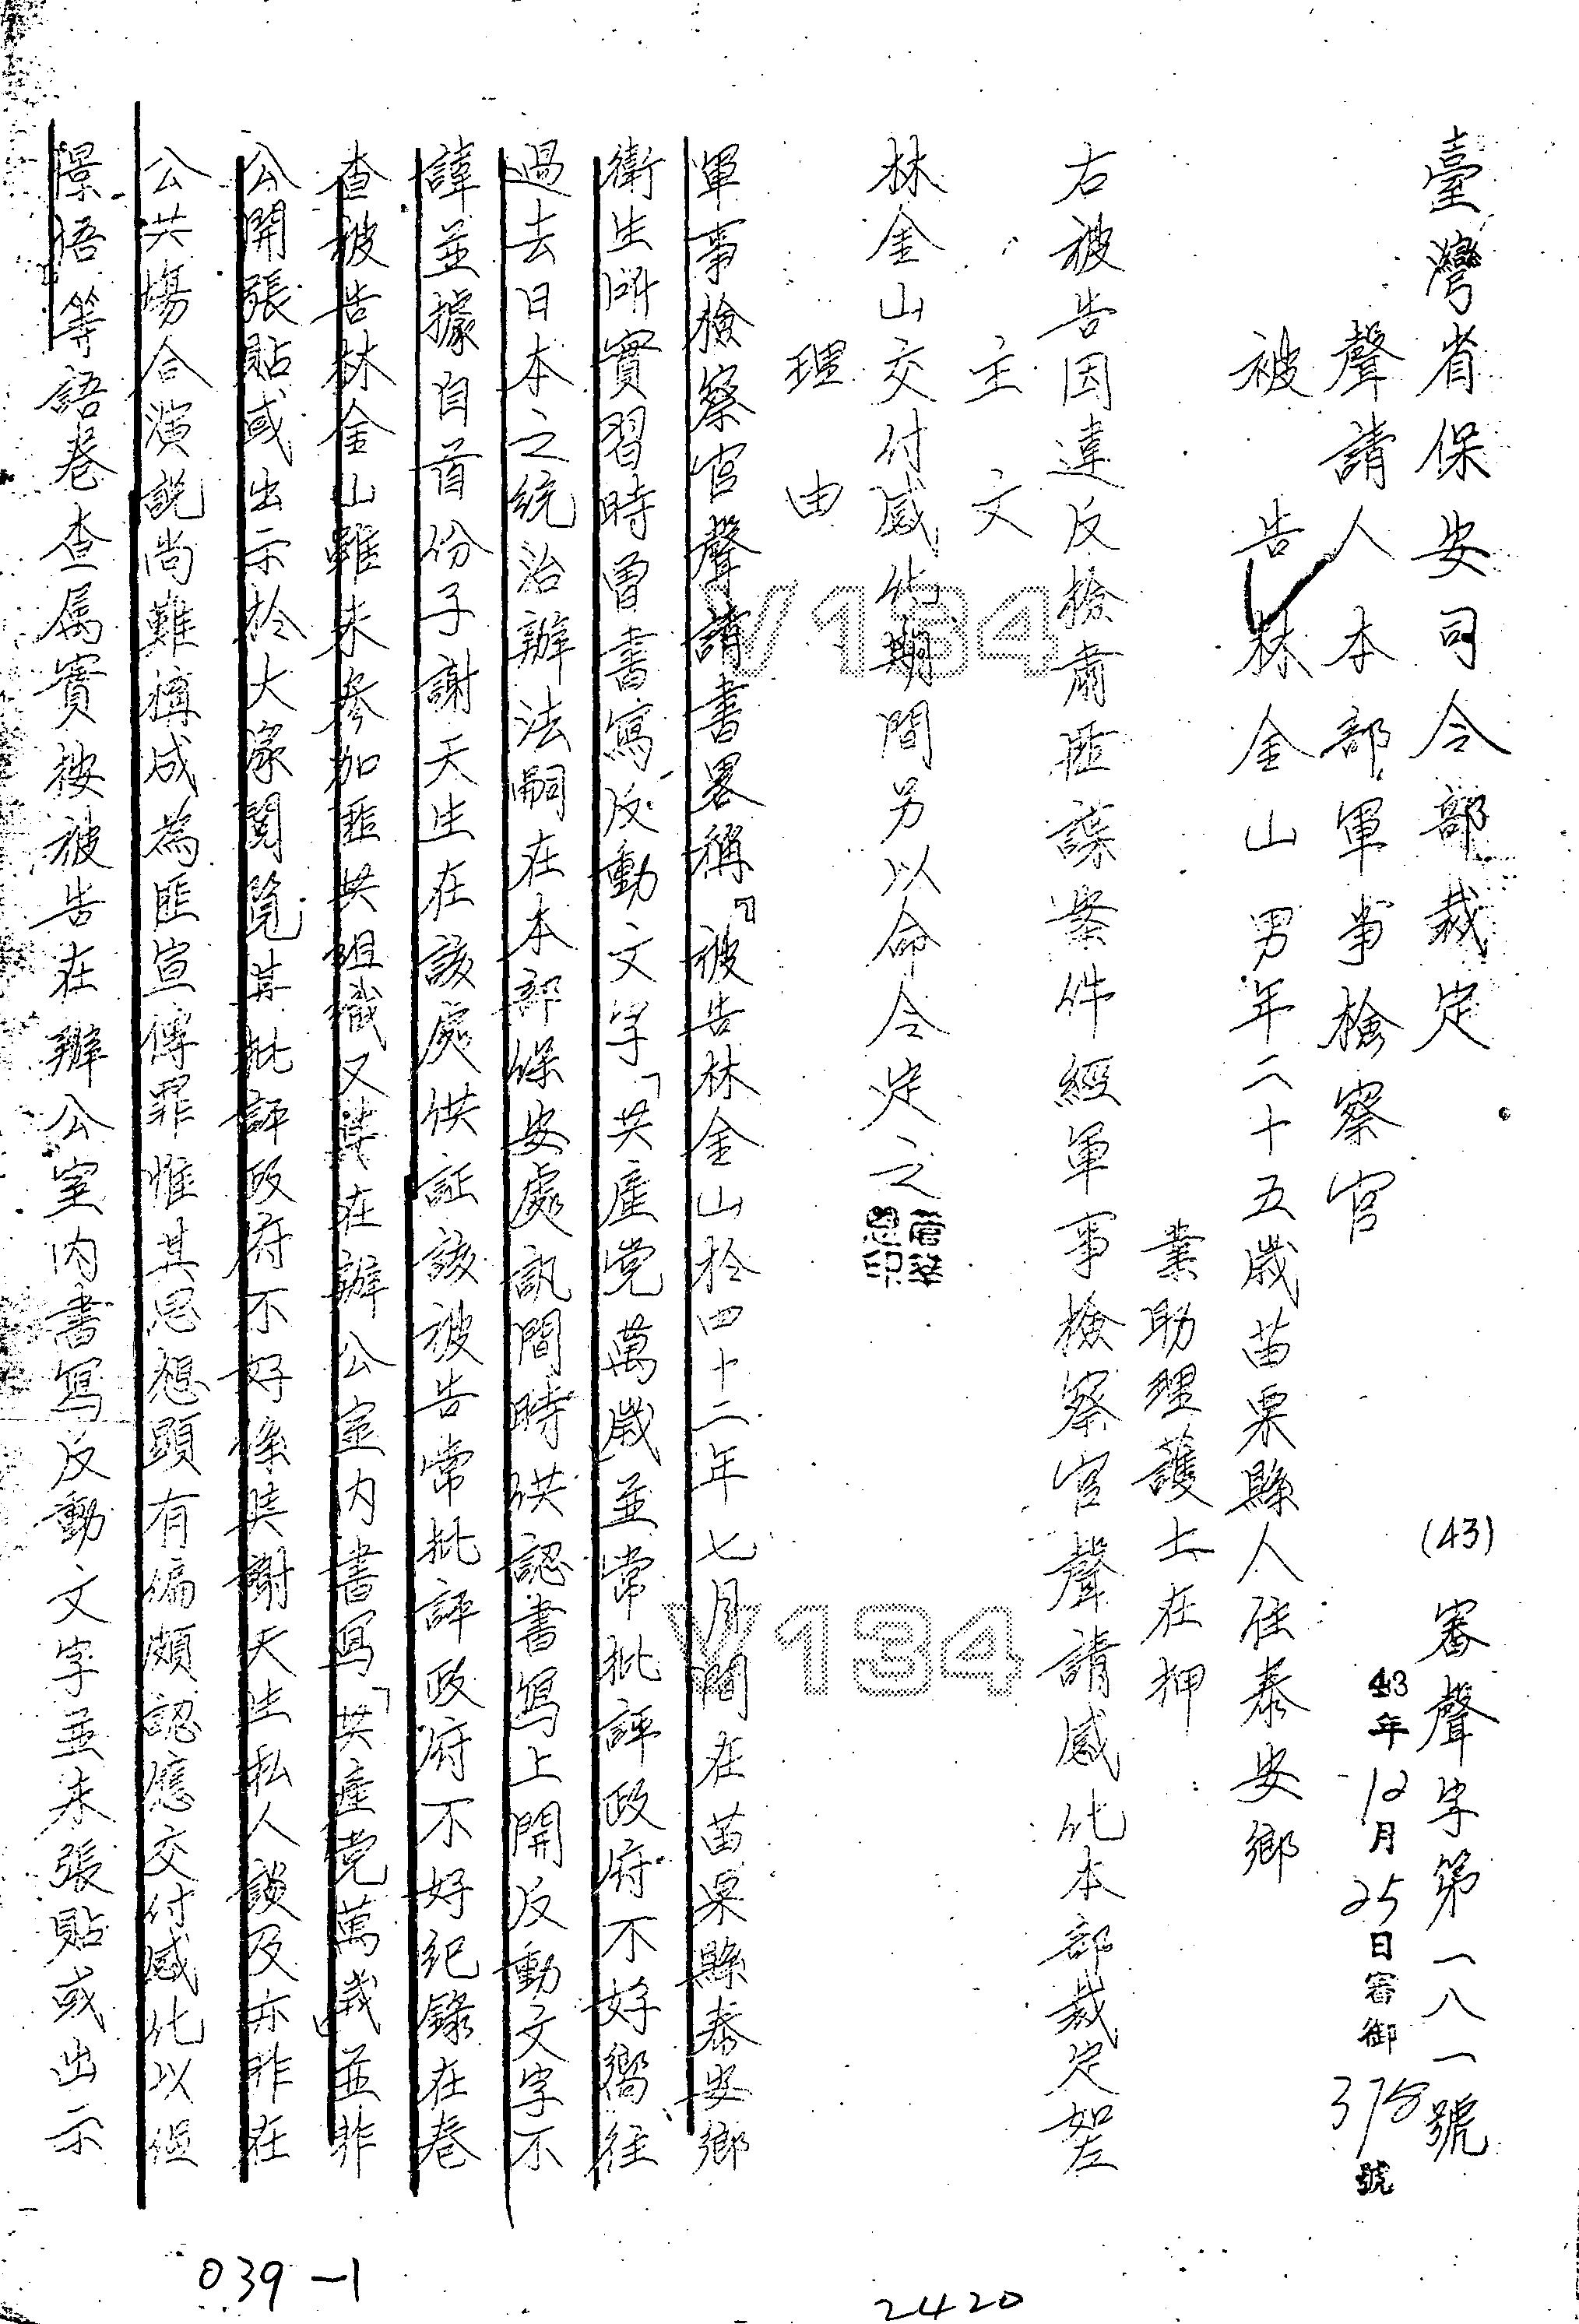 臺灣省保安司令部裁定
(43)審聲字第一八一號
43年12月25日審御378號
聲請人本部軍事檢察官
被告林金山男年二十五歲苗栗縣人住泰安鄉
業助理護士在押
右被告因違反檢肅匪諜案件經軍事檢察官聲請感化本部裁定如左
主文
林金山交付感化期間另以命令定之
理由
軍事檢察官聲請書畧稱『被告林金山於四十二年七月間在苗栗縣泰安鄉
衛生所實習時曾書寫反動文字「共產党萬歲並常批評政府不好嚮往
過去日本之統治辦法嗣在本部保安處訊問時供認書寫上開反動文字不
諱並據自首份子謝天生在該處供証該被告常批評政府不好紀錄在卷
查被告林金山雖未參加匪共組織又其在辦公室內書寫「共產党萬歲」並非
公開張貼或出示於大眾閱覽其批評政府不好係與謝天生私人談及亦非在
公共場合演說尚難構成為匪宣傳罪惟其思想顯有偏頗認應交付感化以俾
憬悟等語卷查屬實按被告在辦公室內書寫反動文字並未張貼或出示
V134
V134
039-1
2420